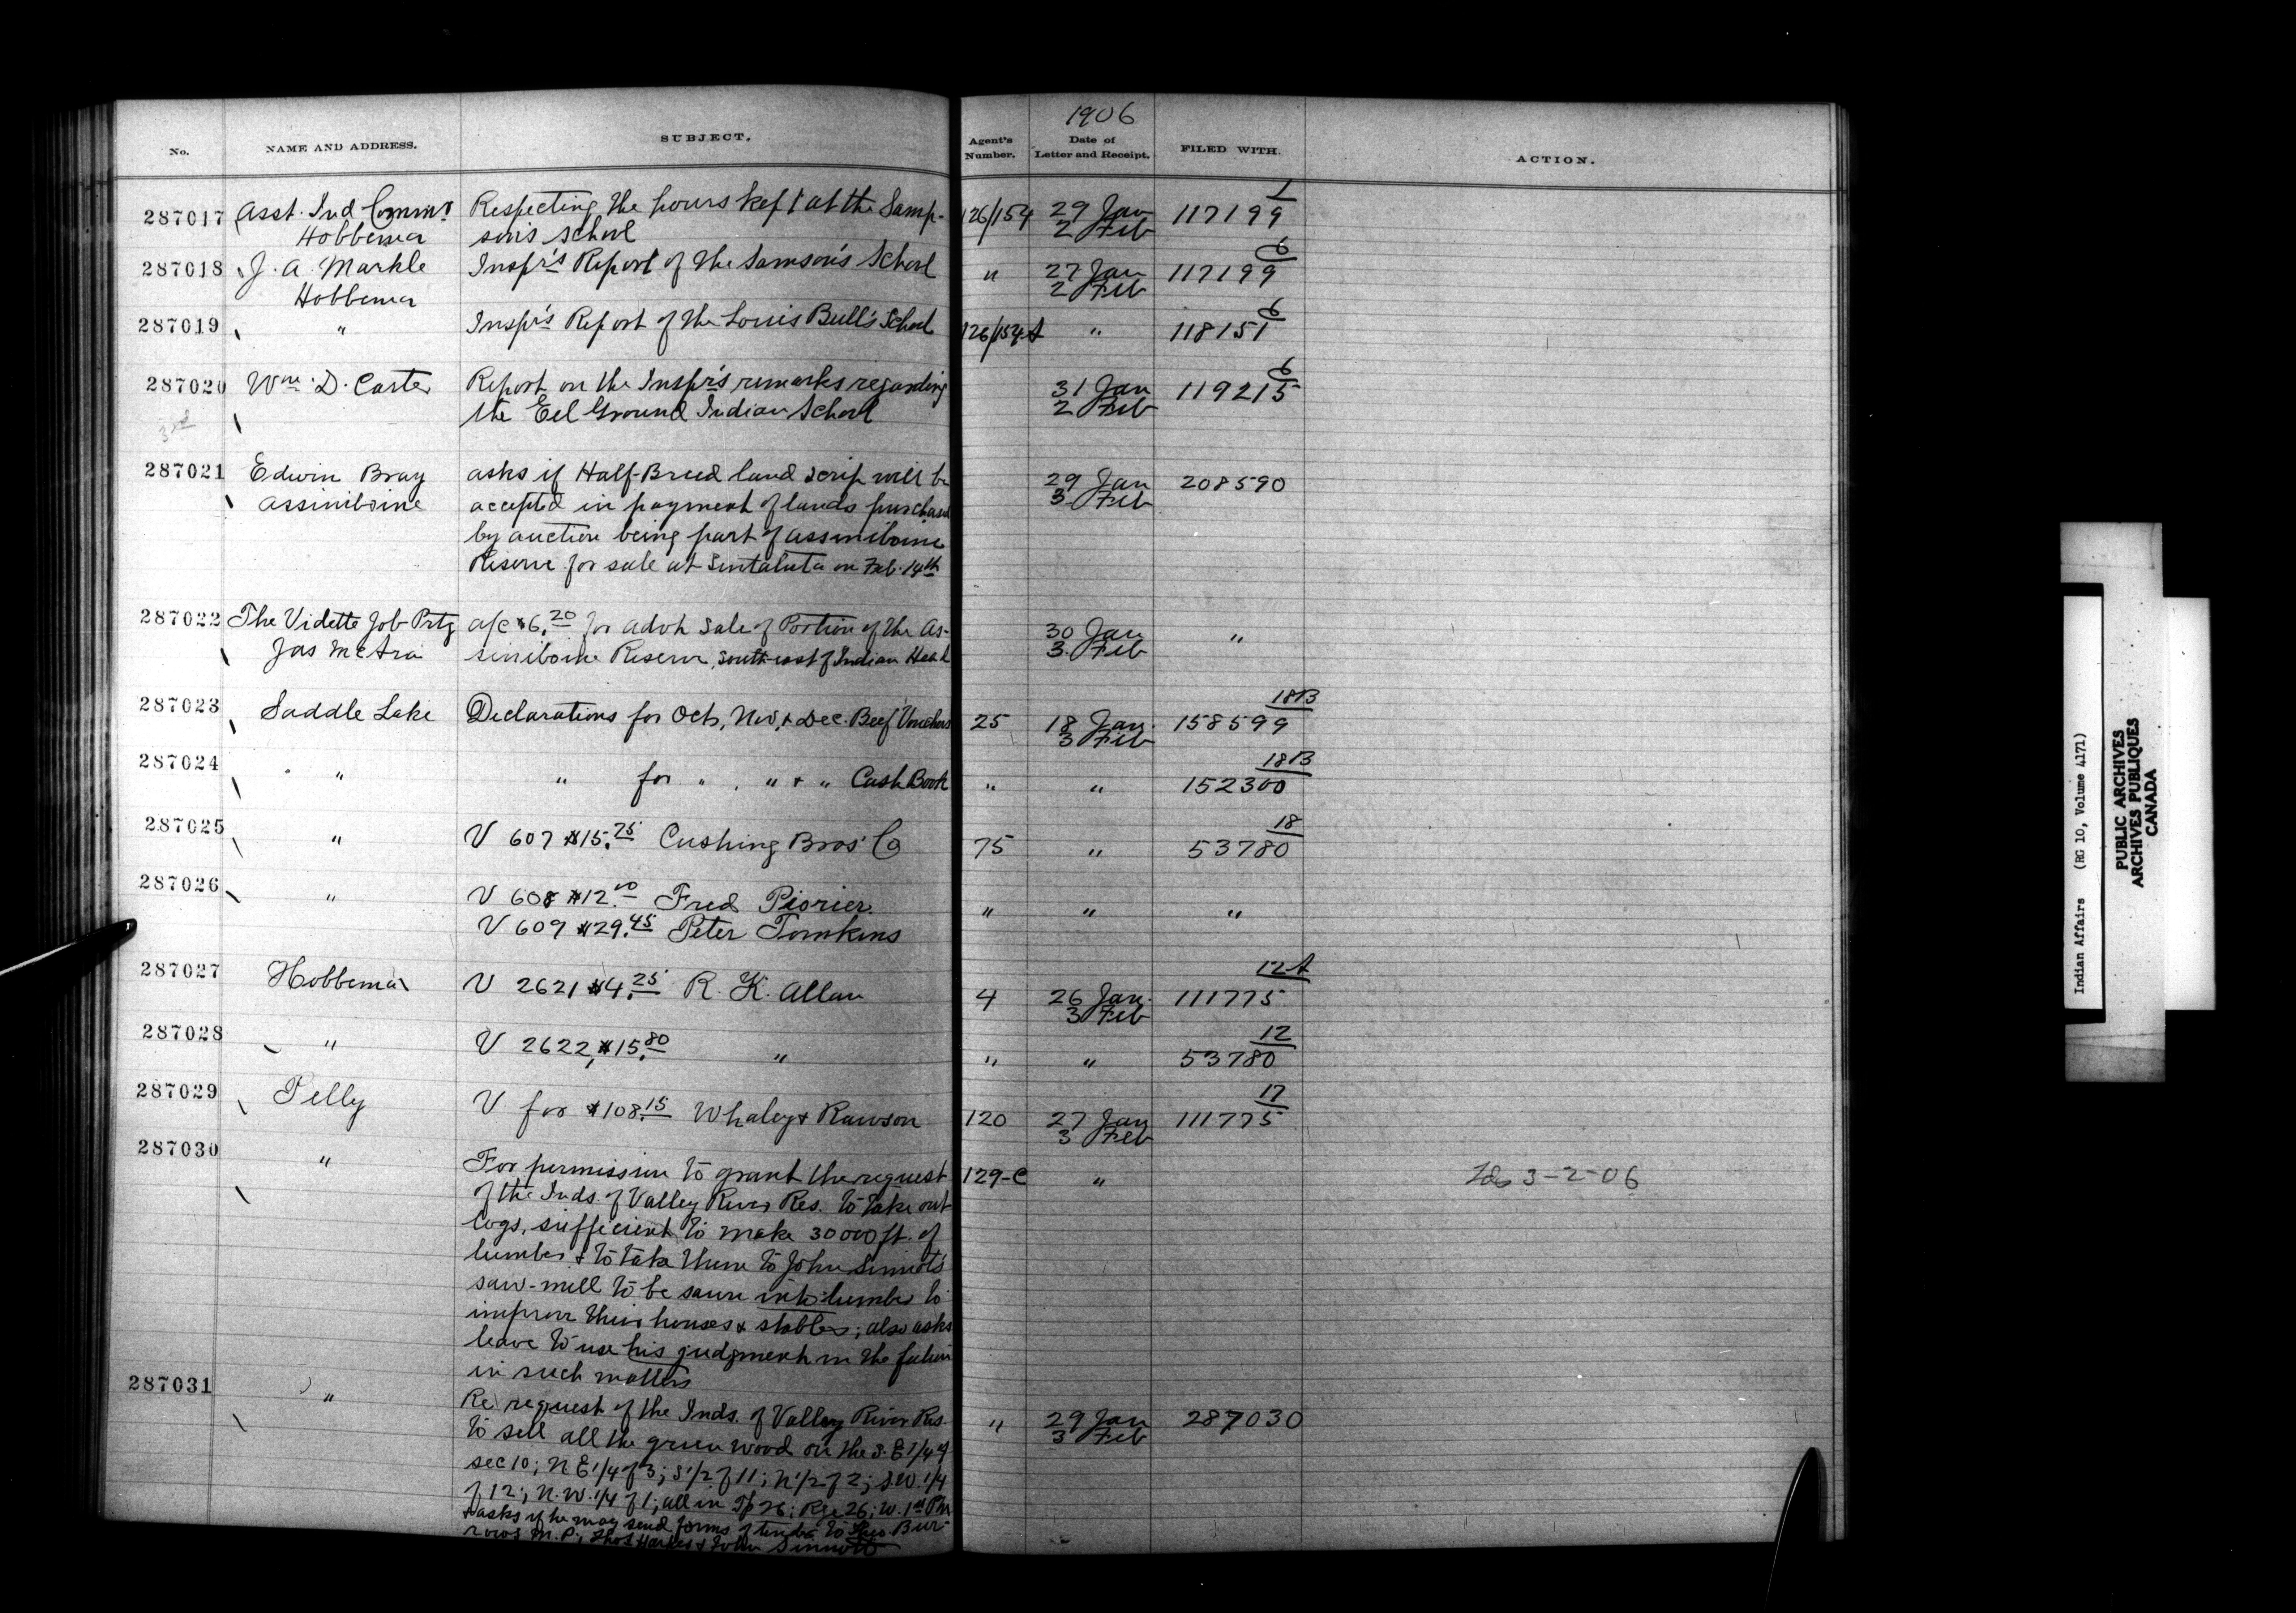 1906
No. NAME AND ADDRESS. SUBJECT. Agent's Number. Date of Letter and Receipt. FILED WITH. ACTION.
287017 Asst. Ind Commr Respecting the hours kept at the Samp- 126/154 29 Jan 117199 1
Hobbema son's School 2 Feb
287018 J. A. Markle Inspr's Report of the Samson's School " 27 Jan 117199 6
Hobbema 2 Feb
287019 " Inspr's Report of the Louis Bull's School 126/154-A " 118151 6
287020 Wm. D. Carter Report on the Inspr's remarks regarding 31 Jan 119215 6
3rd the Eel Ground Indian School 2 Feb
287021 Edwin Bray asks if Half-Breed land scrip will be 29 Jan 208590
Assiniboine accepted in payment of lands purchased 3 Feb
by auction being part of Assiniboine
Reserve for sale at Sintaluta on Feb. 14th
287022 The Vidette Job Prtg a/c $6.20 for advt Sale of Portion of the As- 30 Jan "
Jas McAra siniboine Reserve, south-east of Indian Head 3. Feb
287023 Saddle Lake Declarations for Oct, Nov, & Dec. Beef Vouchers 25 18 Jan. 158599 18B
3 Feb
287024 " " for " , " & " Cash Book " " 152300 18B
287025 " V 607 $15.75 Cushing Bros' Co 75 " 53780 18
287026 " V 608 $12.00 Fred Piorier. " " "
V 609 $29.45 Peter Tomkins
287027 Hobbema V 2621 $4.25 R. K. Allan 4 26 Jan. 111775 12A
3 Feb
287028 " V 2622, $15.80 " " " 53780 12
287029 Pelly V for $108.15 Whaley & Rawson 120 27 Jan 111775 17
3 Feb
287030 " For permission to grant the request 129-C " 3-2-06
of the Inds. of Valley River Res. to take out
logs, sufficient to make 30000 ft. of
lumber & to take them to John Sinnott's
saw-mill to be sawn into lumber to
improve their houses & stables; also asks
leave to use his judgment in the future
in such matters
287031 " Re request of the Inds. of Valley River Res. " 29 Jan 287030
to sell all the green wood on the S. E 1/4 of 3 Feb
sec 10; N E 1/4 of 3; S 1/2 of 11; N 1/2 of 2; S.W. 1/4
of 12; N. W. 1/4 of 1; all in Tp 26; Rge 26; W. 1st PM
& asks if he may send forms of tender to Theo. Bur-
rows M. P.; Thos Harkes & John Sinnott
Indian Affairs (RG 10, Volume 4171)
PUBLIC ARCHIVES
ARCHIVES PUBLIQUES
CANADA